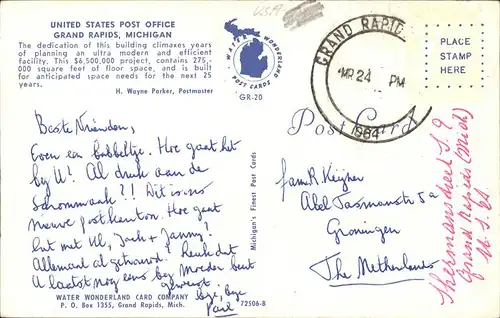 U.S.A.
UNITED STATES POST OFFICE
GRAND RAPIDS, MICHIGAN
The dedication of this building climaxes years
of planning an ultra modern and efficient
facility. This $6,500,000 project, contains 275,-
000 square feet of floor space, and is built
for anticipated space needs for the next 25
years.
H. Wayne Parker, Postmaster
WATER WONDERLAND
POST CARDS
GR-20
GRAND RAPIDS
MR 24 PM
1964
PLACE
STAMP
HERE
Post Card
Beste Vrienden,
Even een babbeltje. Hoe gaat het
bij U? Al druk aan de
schoonmaak?! Dit is ns
nieuwe postkantoor. Hoe gaat
het met Ul, Jack & Janny?
Allemaal al getrouwd? Leuk dat
U laatst nog eens bij Moeder bent
geweest.
bye, bye
Michigan's Finest Post Cards
WATER WONDERLAND CARD COMPANY
P. O. Box 1355, Grand Rapids, Mich.
72506-B
fam. R. Keijzer
Abel Tasmanstr 5a
Groningen
The Netherlands
Sherman street S.E.
Grand Rapids (Mich)
U.S.A.